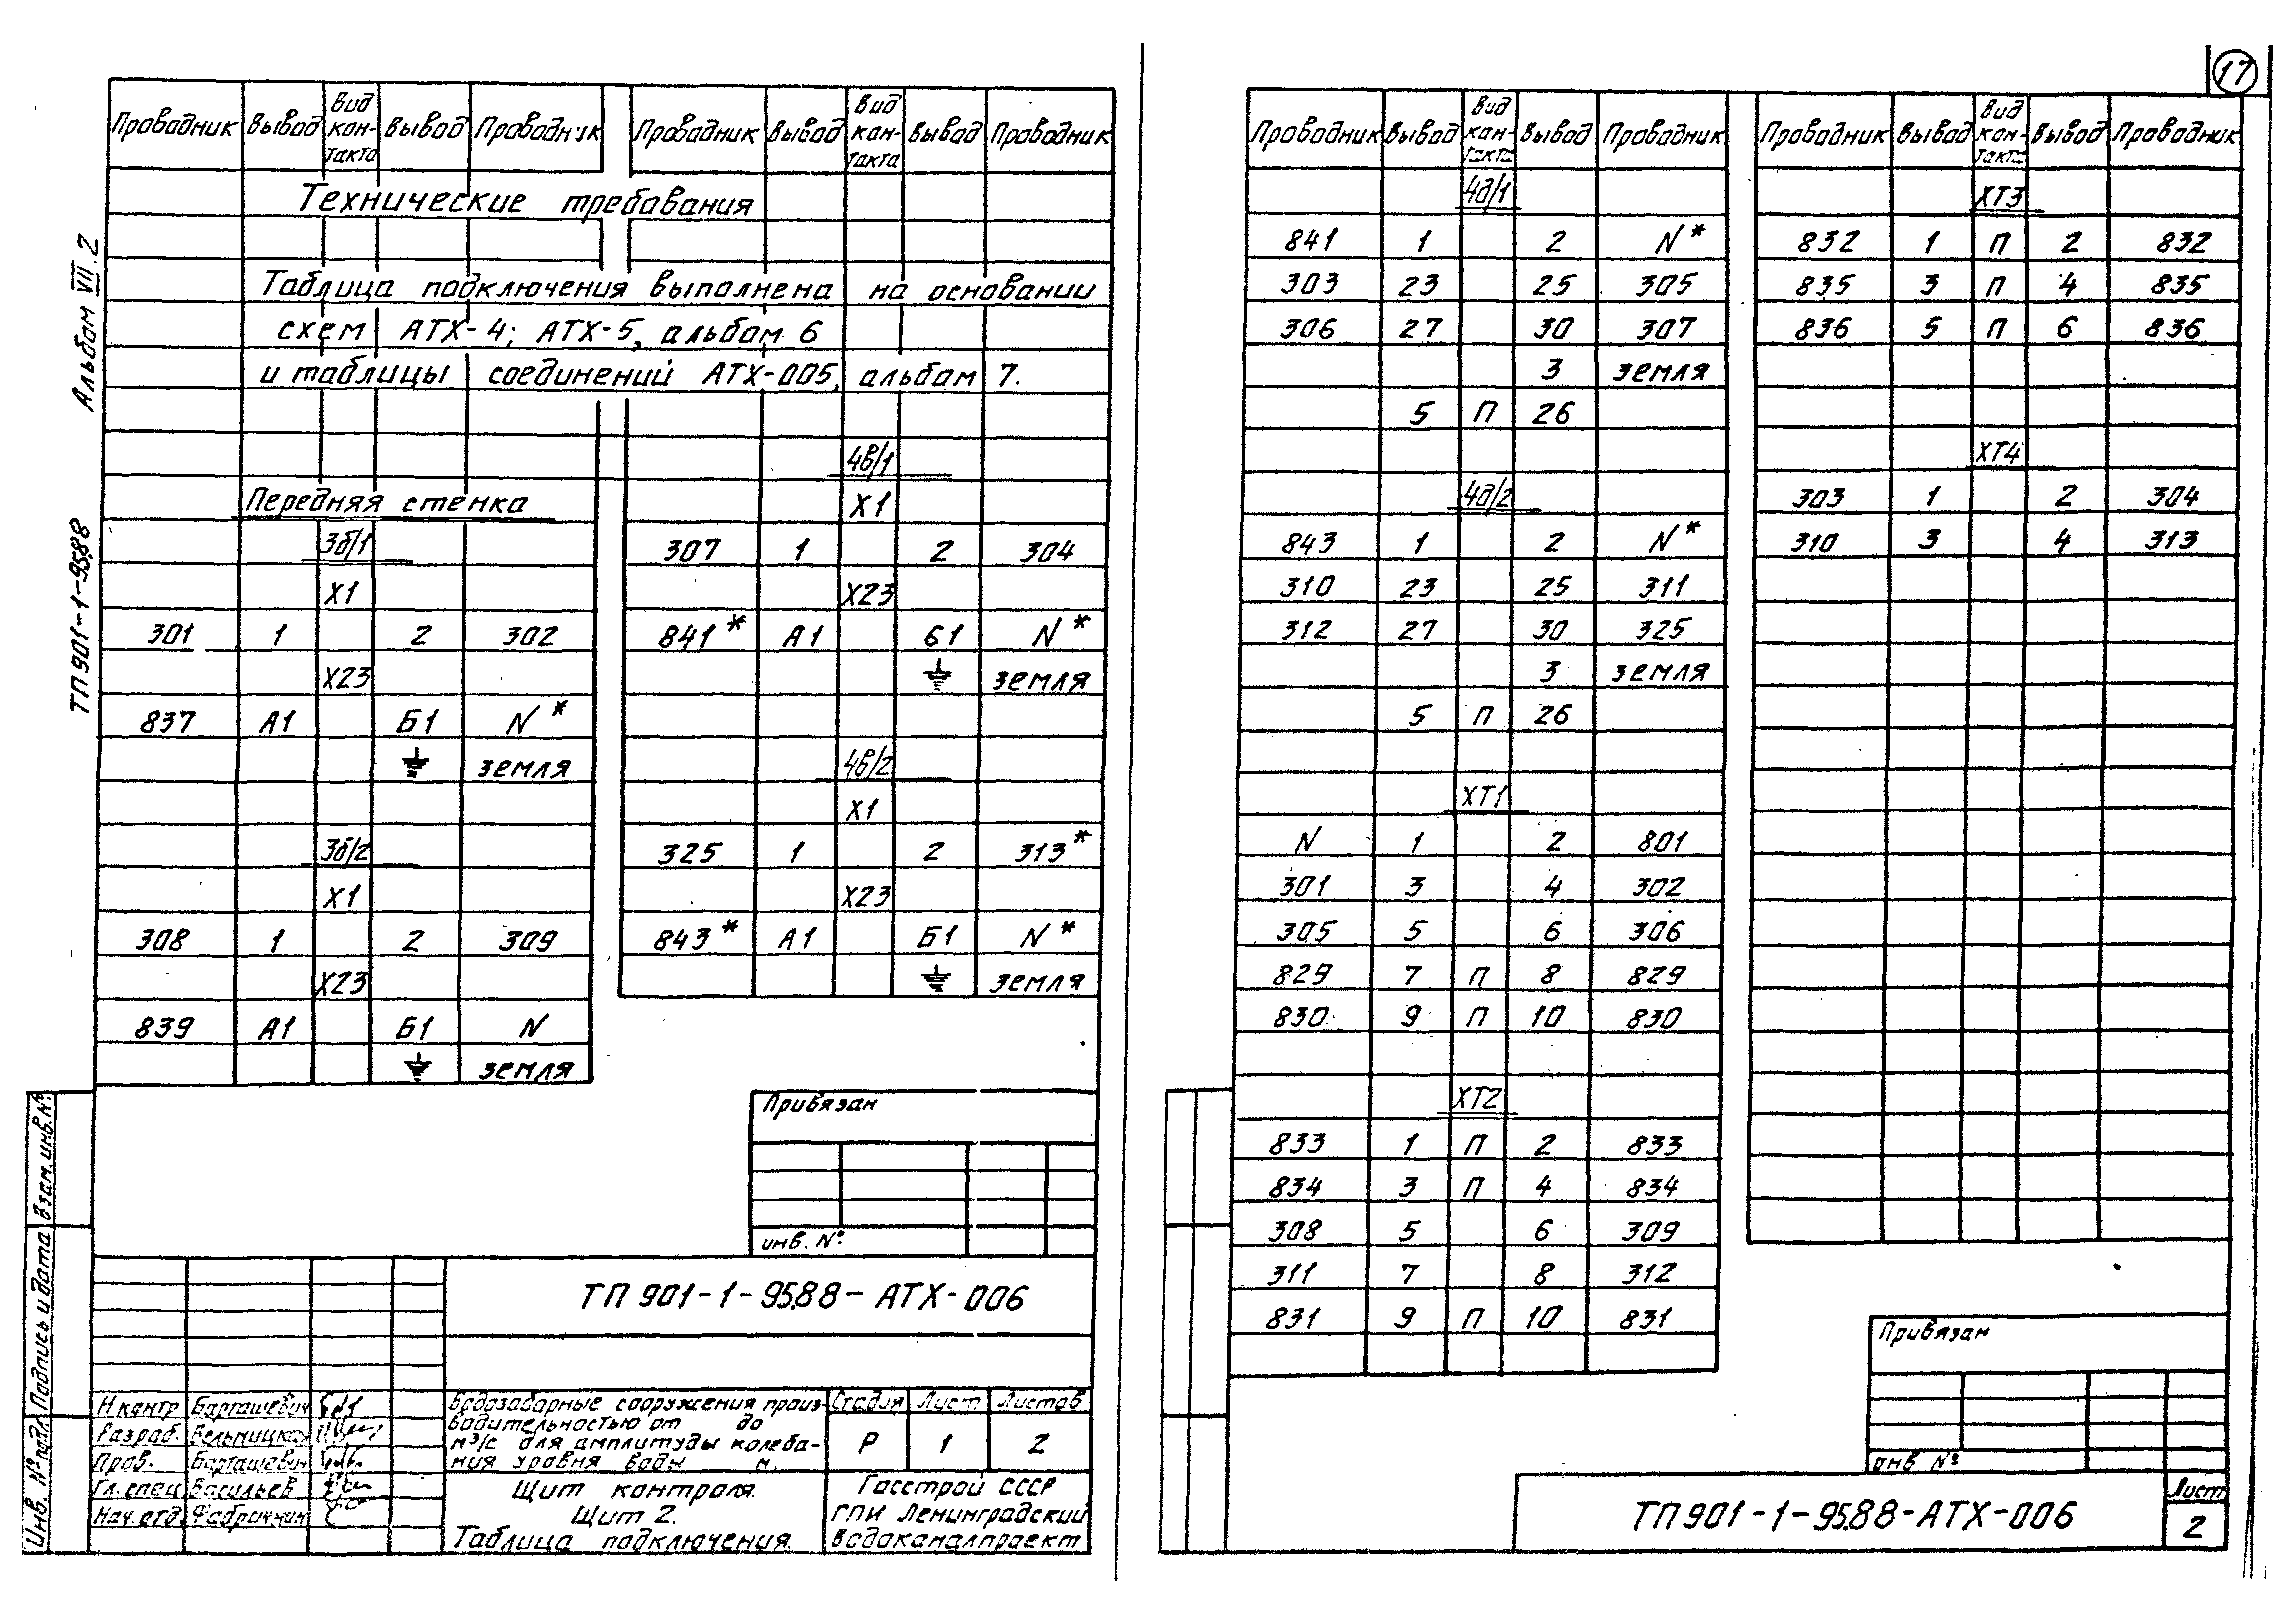 17
Альбом VII.2
ТП901-1-95.88
Проводник Вывод Вид контакта Вывод Проводник Проводник Вывод Вид контакта Вывод Проводник
Технические требования
Таблица подключения выполнена на основании
схем АТХ-4; АТХ-5, альбом 6
и таблицы соединений АТХ-005, альбом 7.
Передняя стенка
3б/1
Х1
301 1 2 302
Х23
837 А1 Б1 N*
земля
3б/2
Х1
308 1 2 309
Х23
839 А1 Б1 N
земля
4в/1
Х1
307 1 2 304
Х23
841* А1 Б1 N*
земля
4в/2
Х1
325 1 2 313*
Х23
843* А1 Б1 N*
земля
Привязан
инв. №
ТП 901-1-95.88-АТХ-006
Н контр Барташевич
Разраб. Вельмицкая
Пров. Барташевич
Гл. спец Васильев
Нач. отд. Фабричник
Водозаборные сооружения произ-
водительностью от до
м³/с для амплитуды колеба-
ния уровня воды м.
Стадия Лист Листов
Р 1 2
Щит контроля.
Щит 2.
Таблица подключения.
Госстрой СССР
ГПИ Ленинградский
Водоканалпроект
Инв. № подл. Подпись и дата Взам. инв. №
Проводник Вывод Вид контакта Вывод Проводник Проводник Вывод Вид контакта Вывод Проводник
4д/1
841 1 2 N*
303 23 25 305
306 27 30 307
3 земля
5 П 26
4д/2
843 1 2 N*
310 23 25 311
312 27 30 325
3 земля
5 П 26
ХТ1
N 1 2 801
301 3 4 302
305 5 6 306
829 7 П 8 829
830 9 П 10 830
ХТ2
833 1 П 2 833
834 3 П 4 834
308 5 6 309
311 7 8 312
831 9 П 10 831
ХТ3
832 1 П 2 832
835 3 П 4 835
836 5 П 6 836
ХТ4
303 1 2 304
310 3 4 313
Привязан
инв №
ТП901-1-95.88-АТХ-006
Лист
2